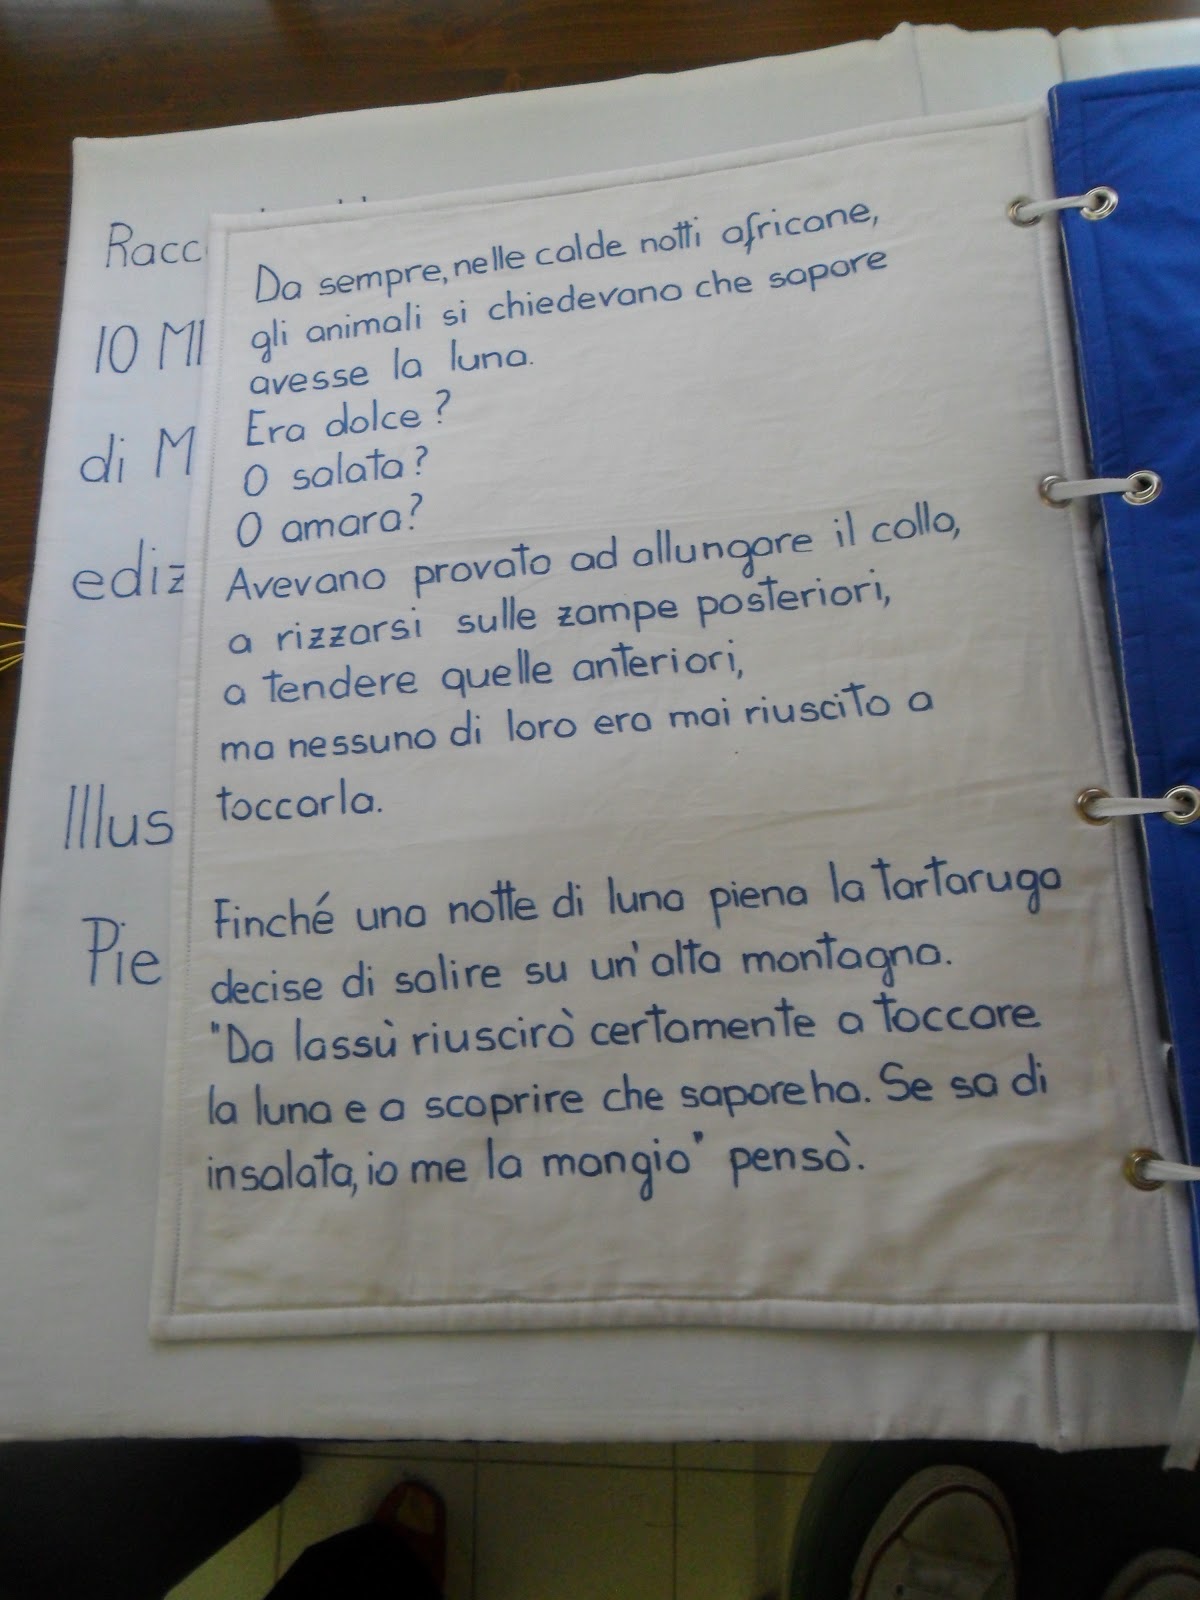 Racc
IO MI
di M
ediz
Illus
Pie
Da sempre, nelle calde notti africane,
gli animali si chiedevano che sapore
avesse la luna.
Era dolce?
O salata?
O amara?
Avevano provato ad allungare il collo,
a rizzarsi sulle zampe posteriori,
a tendere quelle anteriori,
ma nessuno di loro era mai riuscito a
toccarla.
Finché una notte di luna piena la tartaruga
decise di salire su un'alta montagna.
"Da lassù riuscirò certamente a toccare
la luna e a scoprire che sapore ha. Se sa di
insalata, io me la mangio" pensò.